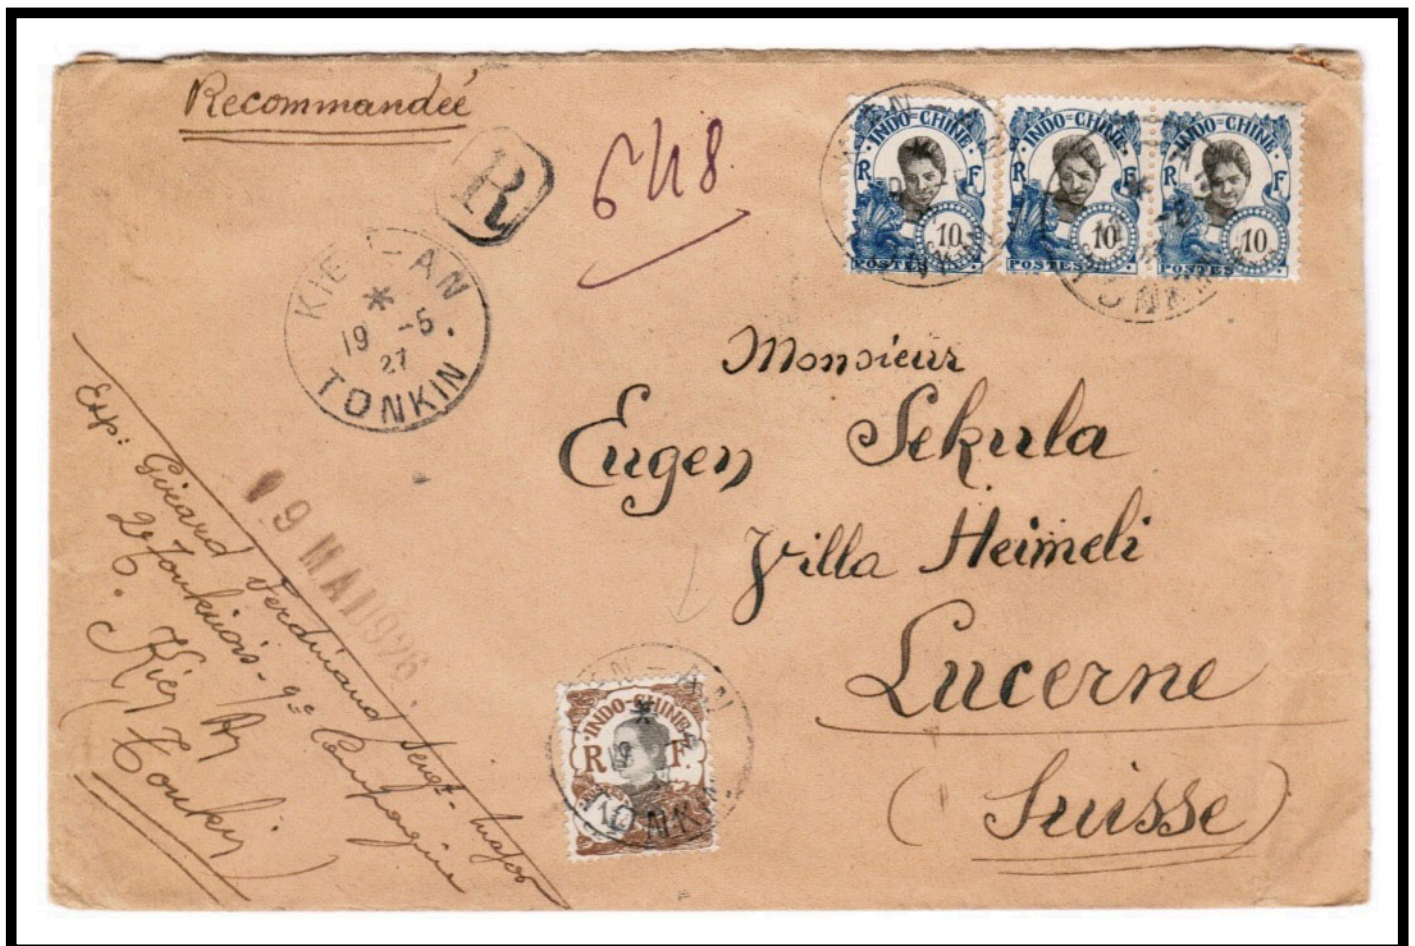 Recommandée
R
648
INDO=CHINE
R F
10
POSTES
INDO=CHINE
R F
10
POSTES
INDO=CHINE
R F
10
POSTES
TONKIN
KIEN-AN
19 -5
27
TONKIN
Monsieur
Eugen Sekula
Villa Heimeli
Lucerne
(Suisse)
19 MAI 1926
Exp: Girard Ferdinand Sergt-Major
2e Tonkinois - 9e Compagnie
Kien An
(Tonkin)
INDO-CHINE
R F.
10
TONKIN